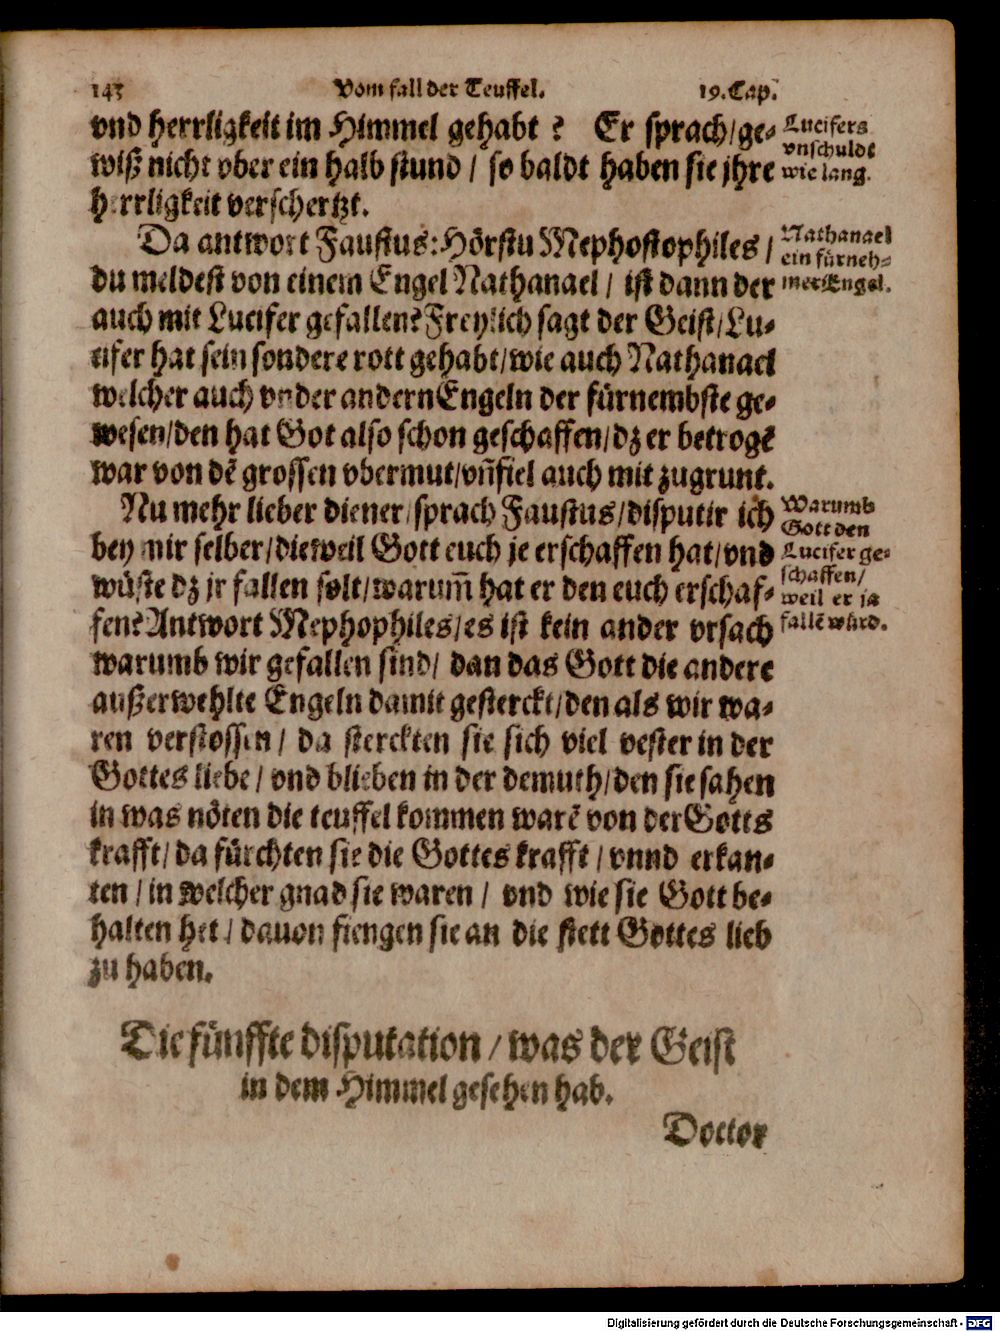 143 Vom fall der Teuffel. 19. Cap.
vnd herrligkeit im Himmel gehabt? Er sprach/ge-
wiß nicht vber ein halb stund / so baldt haben sie jhre
herrligkeit verschertzt.
Lucifers
vnschuldt
wie lang.
Da antwort Faustus: Hörstu Mephostophiles /
du meldest von einem Engel Nathanael / ist dann der
auch mit Lucifer gefallen? Freylich sagt der Geist/Lu-
cifer hat sein sondere rott gehabt/wie auch Nathanael
welcher auch vnder andern Engeln der fürnembste ge-
wesen/den hat Got also schon geschaffen/dz er betrogē
war von dē grossen vbermut/vn̄ fiel auch mit zugrunt.
Nathanael
ein fürneh-
mer Engel.
Nu mehr lieber diener/sprach Faustus/disputir ich
bey mir selber/dieweil Gott euch je erschaffen hat/vnd
wüste dz jr fallen solt/warum̄ hat er den euch erschaf-
fen? Antwort Mephophiles/es ist kein ander vrsach
warumb wir gefallen sind/ dan das Gott die andere
außerwehlte Engeln damit gesterckt/den als wir wa-
ren verstossen / da sterckten sie sich viel vester in der
Gottes liebe / vnd blieben in der demuth/den sie sahen
in was nöten die teuffel kommen warē von der Gotts
krafft/da fürchten sie die Gottes krafft / vnnd erkan-
ten / in welcher gnad sie waren / vnd wie sie Gott be-
halten het / dauon fiengen sie an die stett Gottes lieb
zu haben.
Warumb
Gott den
Lucifer ge-
schaffen/
weil er ja
fallē würd.
Die fünffte disputation / was der Geist
in dem Himmel gesehen hab.
Doctor
Digitalisierung gefördert durch die Deutsche Forschungsgemeinschaft - DFG